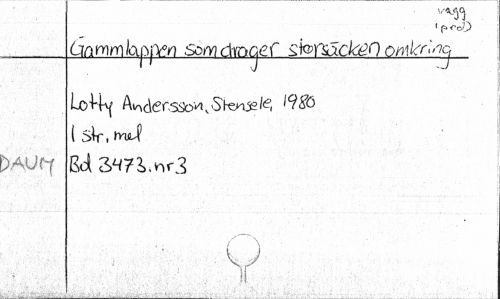 vagg
(pred)
Gammlappen som drager storsäcken omkring
Lotty Andersson, Stensele, 1980
1 str, mel
DAUM Bd 3473. nr 3